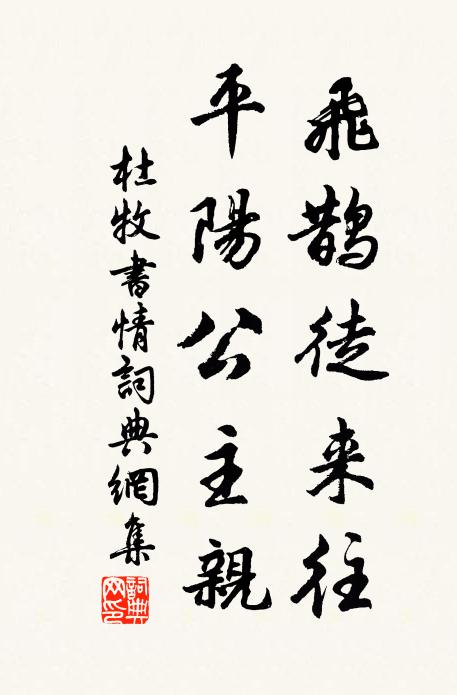 飛鵲徒来往
平陽公主親
杜牧書情詞典網集
詞典網印